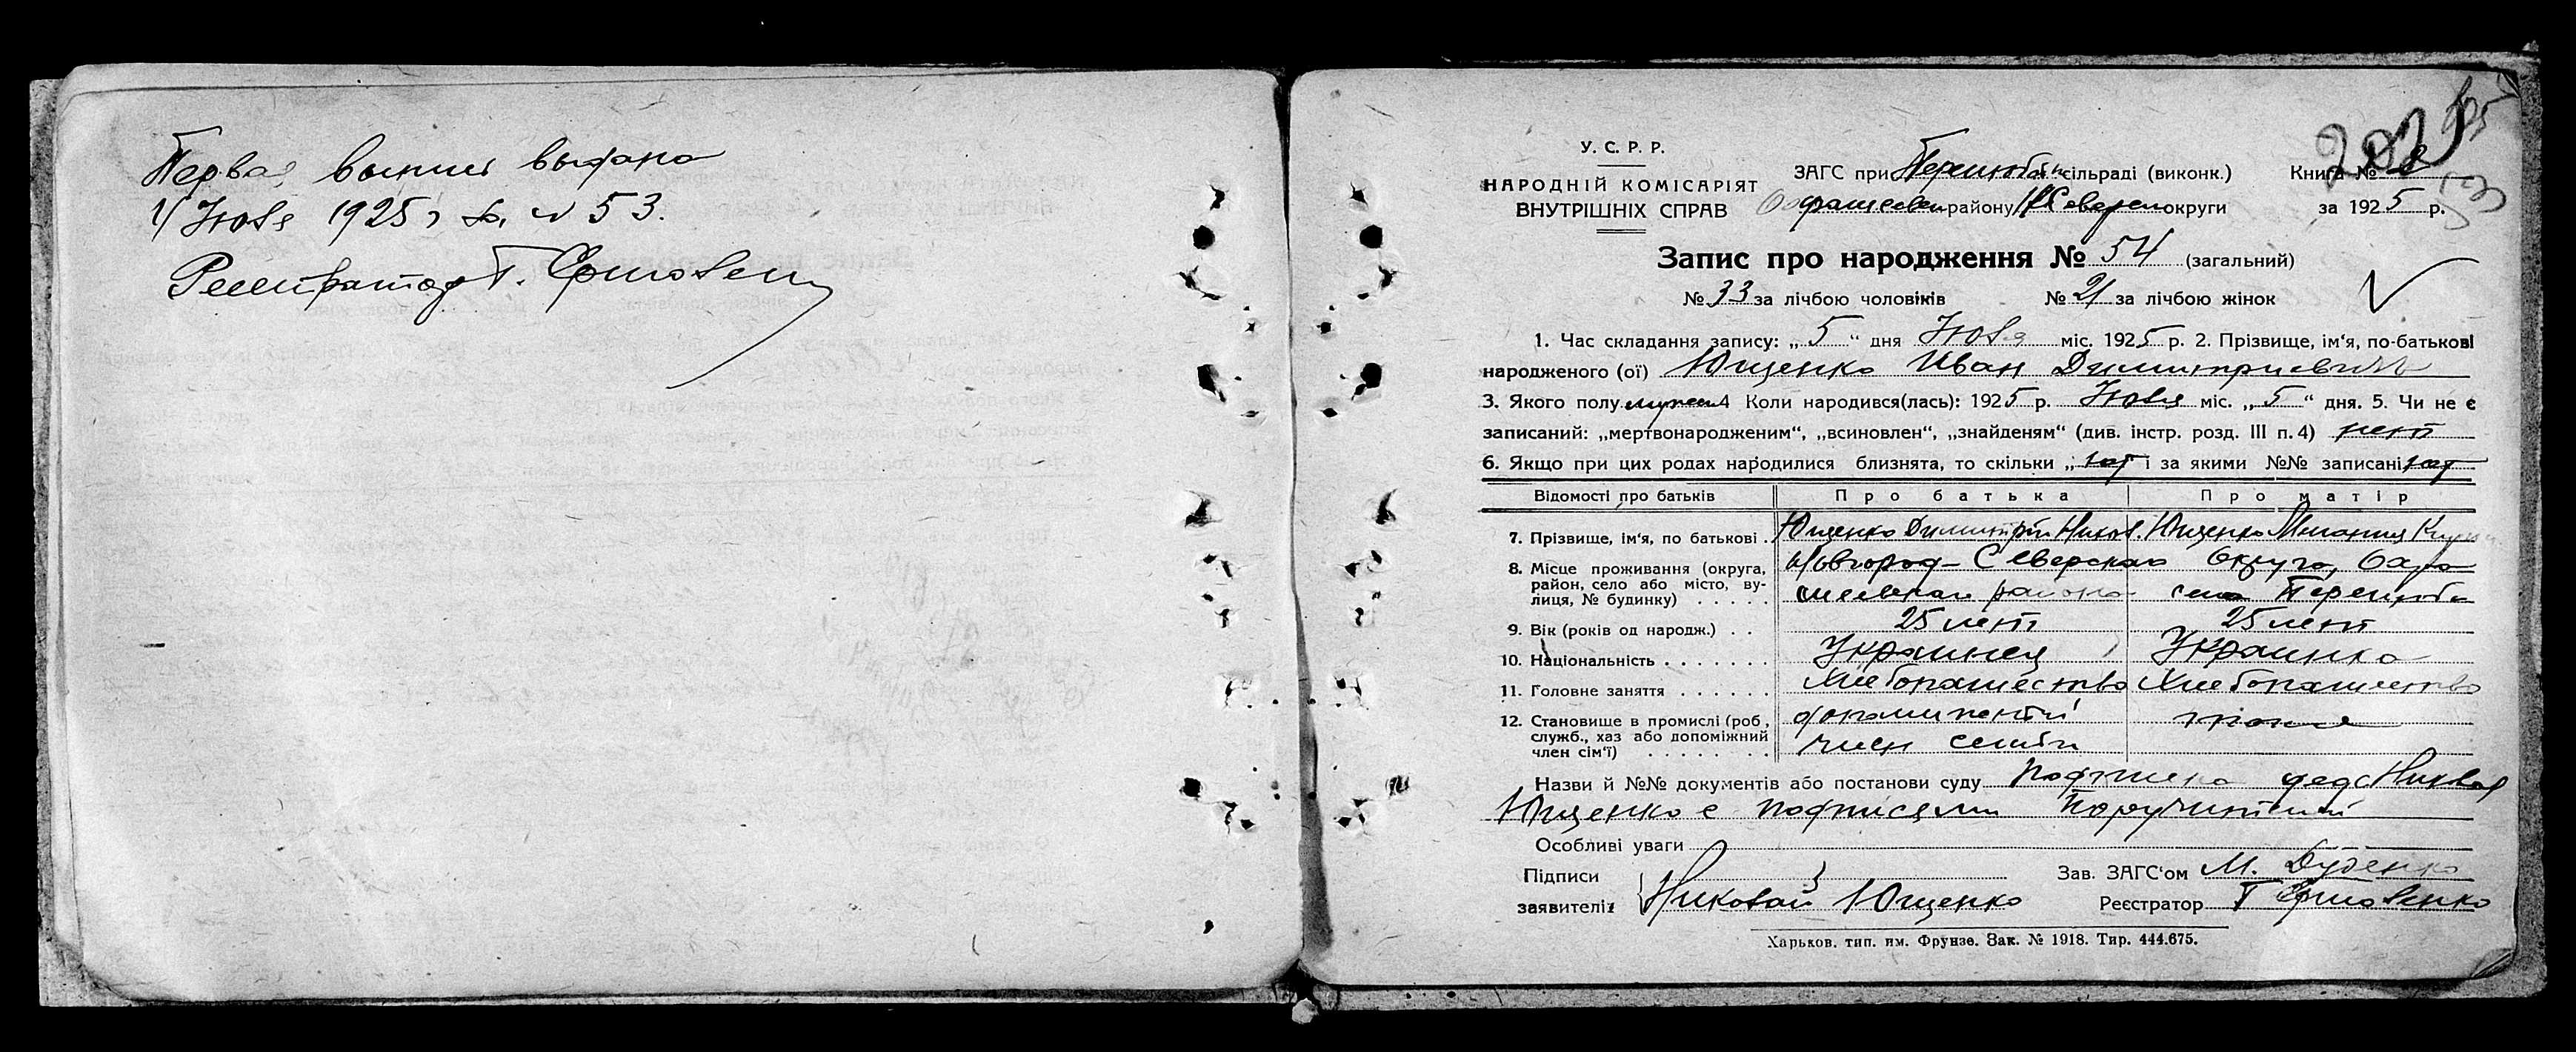 Первая выпись выдана
1/ Июля 1925 г за № 53.
Регистратор Г. Ермоленко
У. С. Р. Р.
НАРОДНІЙ КОМІСАРІЯТ
ВНУТРІШНІХ СПРАВ
ЗАГС при Перелюбск сільраді (виконк.)
районy Н/Северск округи
Книга №
за 1925 р.
53
Запис про народження № 54 (загальний)
№ 33 за лічбою чоловіків № 21 за лічбою жінок
1. Час складання запису: „ 5 “ дня Июля міс. 1925 р. 2. Прізвище, ім‘я, по-батькові
народженого (ої) Ющенко Иван Димитриевич
3. Якого полу мужск 4 Коли народився(лась): 1925 р. Июля міс. „ 5 “ дня. 5. Чи не є
записаний: „мертвонародженим“, „всиновлен“, „знайденям“ (див. інстр. розд. III п. 4) нет
6. Якщо при цих родах народилися близнята, то скільки „ нет і за якими №№ записані нет
Відомості про батьків Про батька Про матір
7. Прізвище, ім‘я, по батькові . Ющенко Димитрий Никол. Ющенко Мелания
8. Місце проживання (округа, район, село або місто, вулиця, № будинку) . . . . . Новгород-Северская Округа, Охра
миевского района село Перелюб
9. Вік (років од народж.) . . 25 лет 25 лет
10. Національність . . . . . . . Украинец Украинка
11. Головне заняття . . . . . . Хлебопашество Хлебопашество
12. Становище в промислі (роб., служб., хаз або допоміжний член сім‘ї) . . . . . . . член семьи
Назви й №№ документів або постанови суду Подписка деда Николая
Ющенко с подписями поручителей
Особливі уваги
Підписи
заявителів Николай Ющенко
Зав. ЗАГС‘ом М. Дуденко
Реєстратор Г Ермоленко
Харьков. тип. им. Фрунзе. Зак. № 1918. Тир. 444.675.